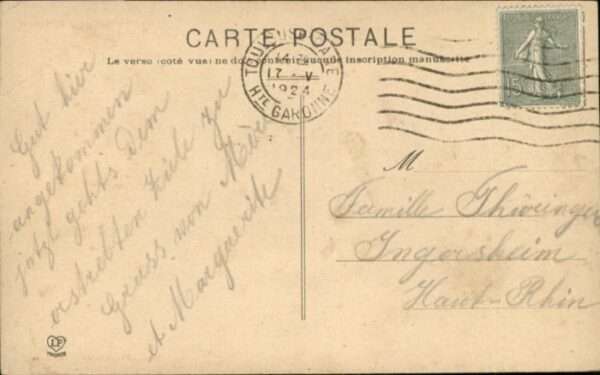 CARTE POSTALE
Le verso (coté vue) ne doit contenir aucune inscription manuscrite
TOULOUSE GARE
17 V
1924
HTE GARONNE
15
Gut hier
angekommen
jetzt geht's dem
erstrebten Ziele zu
Gruss von
et Marguerite
M
Famille Thüringer
Ingersheim
Haut-Rhin